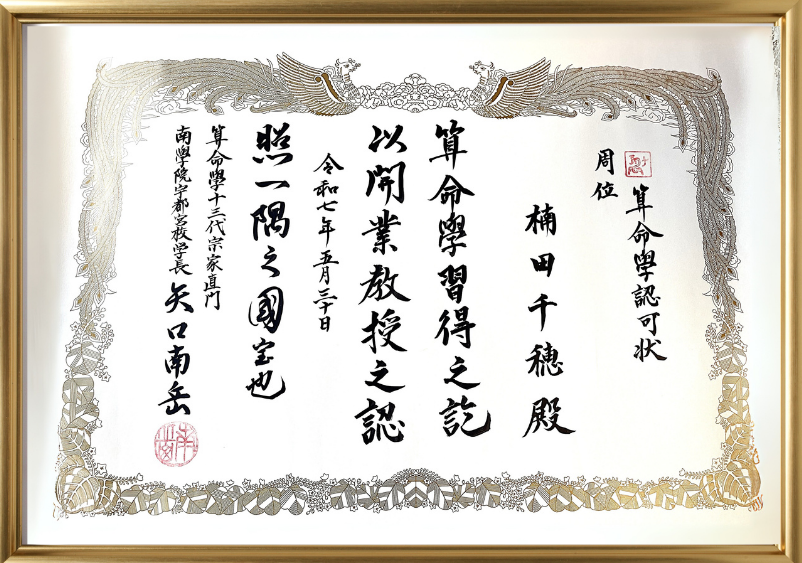 算命學認可状
周位
楠田千穂殿
算命學習得之訖
以開業教授之認
令和七年五月三十日
照一隅之國宝也
算命學十三代宗家直門
南學院宇都宮校学長 矢口南岳